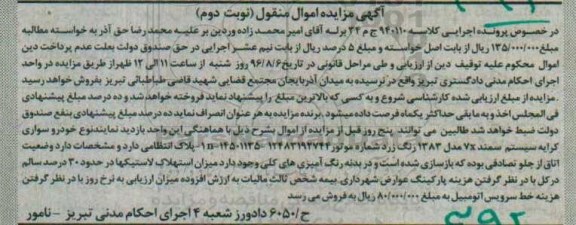 آگهی مزایده اموال منقول (نوبت دوم)
در خصوص پرونده اجرایی کلاسه ۹۴۰۱۱۰ ج م ۳۴ برله آقای امیر محمد زاده وردین بر علیه محمد رضا حق آذر به خواسته مطالبه
مبلغ ۱۳۵/۰۰۰/۰۰۰ ریال از بابت اصل خواسته و مبلغ ۵ درصد ریال از بابت نیم عشر اجرایی در حق صندوق دولت بعلت عدم پرداخت دین
اموال محکوم علیه توقیف دین از ارزیابی و طی مراحل قانونی در تاریخ ۹۶/۸/۶ روز شنبه از ساعت ۱۱ الی ۱۲ ظهر از طریق مزایده در واحد
اجرای احکام مدنی دادگستری تبریز واقع در نرسیده به میدان آذربایجان مجتمع قضایی شهید قاضی طباطبائی تبریز بفروش خواهد رسید
. مزایده از مبلغ ارزیابی شده کارشناسی شروع و به کسی که بالاترین مبلغ را پیشنهاد نماید فروخته خواهد شد و ده درصد مبلغ پیشنهادی
فی المجلس اخذ و به مابقی حداکثر یکماه فرصت داده میشود . برنده مزایده به هر عنوان انصراف نماید ده درصد مبلغ پیشنهادی بنفع صندوق
دولت ضبط خواهد شد طالبین می توانند پنج روز قبل از مزایده از اموال بشرح ذیل با هماهنگی این واحد بازدید نمایند نوع خودرو سواری
کرایه سیستم سمند x۷ مدل ۱۳۸۳ رنگ زرد شماره موتور پلاک انتظامی دارد و مشخصات دارد وضعیت
اتاق از جلو تصادفی بوده که بازسازی شده است و در بدنه رنگ آمیزی های کلی وجود دارد میزان استهلاک لاستیکها در حدود ۳۰ درصد سالم
در کل با در نظر گرفتن هزینه پارکینگ عوارض شهرداری. بیمه شخص ثالث مالیات به ارزش افزوده میزان ارزیابی به نرخ روز با در نظر گرفتن
هزینه خط سرویس اتومبیل به مبلغ ۸۰/۰۰۰/۰۰۰ ریال به فروش می رسد
ح/۶۰۵۰ دادورز شعبه ۴ اجرای احکام مدنی تبریز - نامور